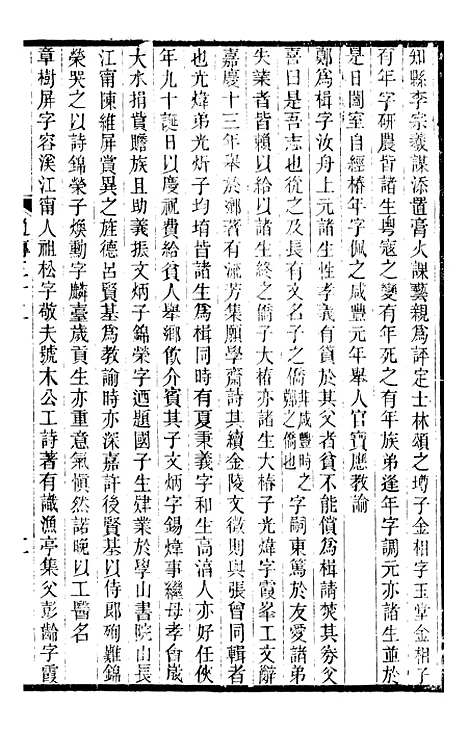 知縣李宗羲謀添置膏火課藝親爲評定士林頌之壿子金相字玉堂金相子
有年字研農皆諸生粵寇之變有年死之有年族弟逢年字調元亦諸生並於
是日闔室自經椿年字佩之咸豐元年舉人官寶應教諭
鄭爲楫字汝舟上元諸生性孝義有負於其父者貧不能償爲楫請焚其劵父
喜曰是吾志也以歲貢生終子僑非咸豐時之鄭之僑也字嗣東篤於友愛諸弟
失業者皆賴以給有文名子之僑子大椿亦諸生大椿子光煒字霞峯工文辭
嘉慶十三年舉於鄉著有流芳集願學齋詩其續金陵文徵則與張曾同輯者
也光煒弟光炘子均堉皆諸生爲楫同時有夏秉義字和生高淯人亦好任俠
年九十誕日以慶祝費給貧人舉鄉飲介賓其子文炳字錫煒事繼母孝會歲
大水捐貲贍族且助義振文炳子錦榮字迺題國子生肄業於學山書院山長
江甯陳維屏賞異之旌德呂賢基爲教諭時亦深嘉許後賢基以侍郎殉難錦
榮哭之以詩錦榮子煥勳字麟臺歲貢生亦重意氣愼然諾晚以工醫名
章樹屏字容溪江甯人祖松字敬夫號木公工詩著有識漁亭集父彭齡字霞